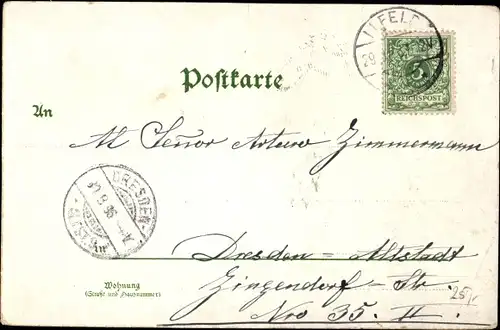 ILFELD
5
REICHSPOST
Postkarte
An
Al Señor Arturo Zimmermann
DRESDEN-
ALTST.
30 8 96
Dresden - Altstadt
Wohnung
(Straße und Hausnummer)
Zinzendorf - Str.
Nro 35. II.
25/